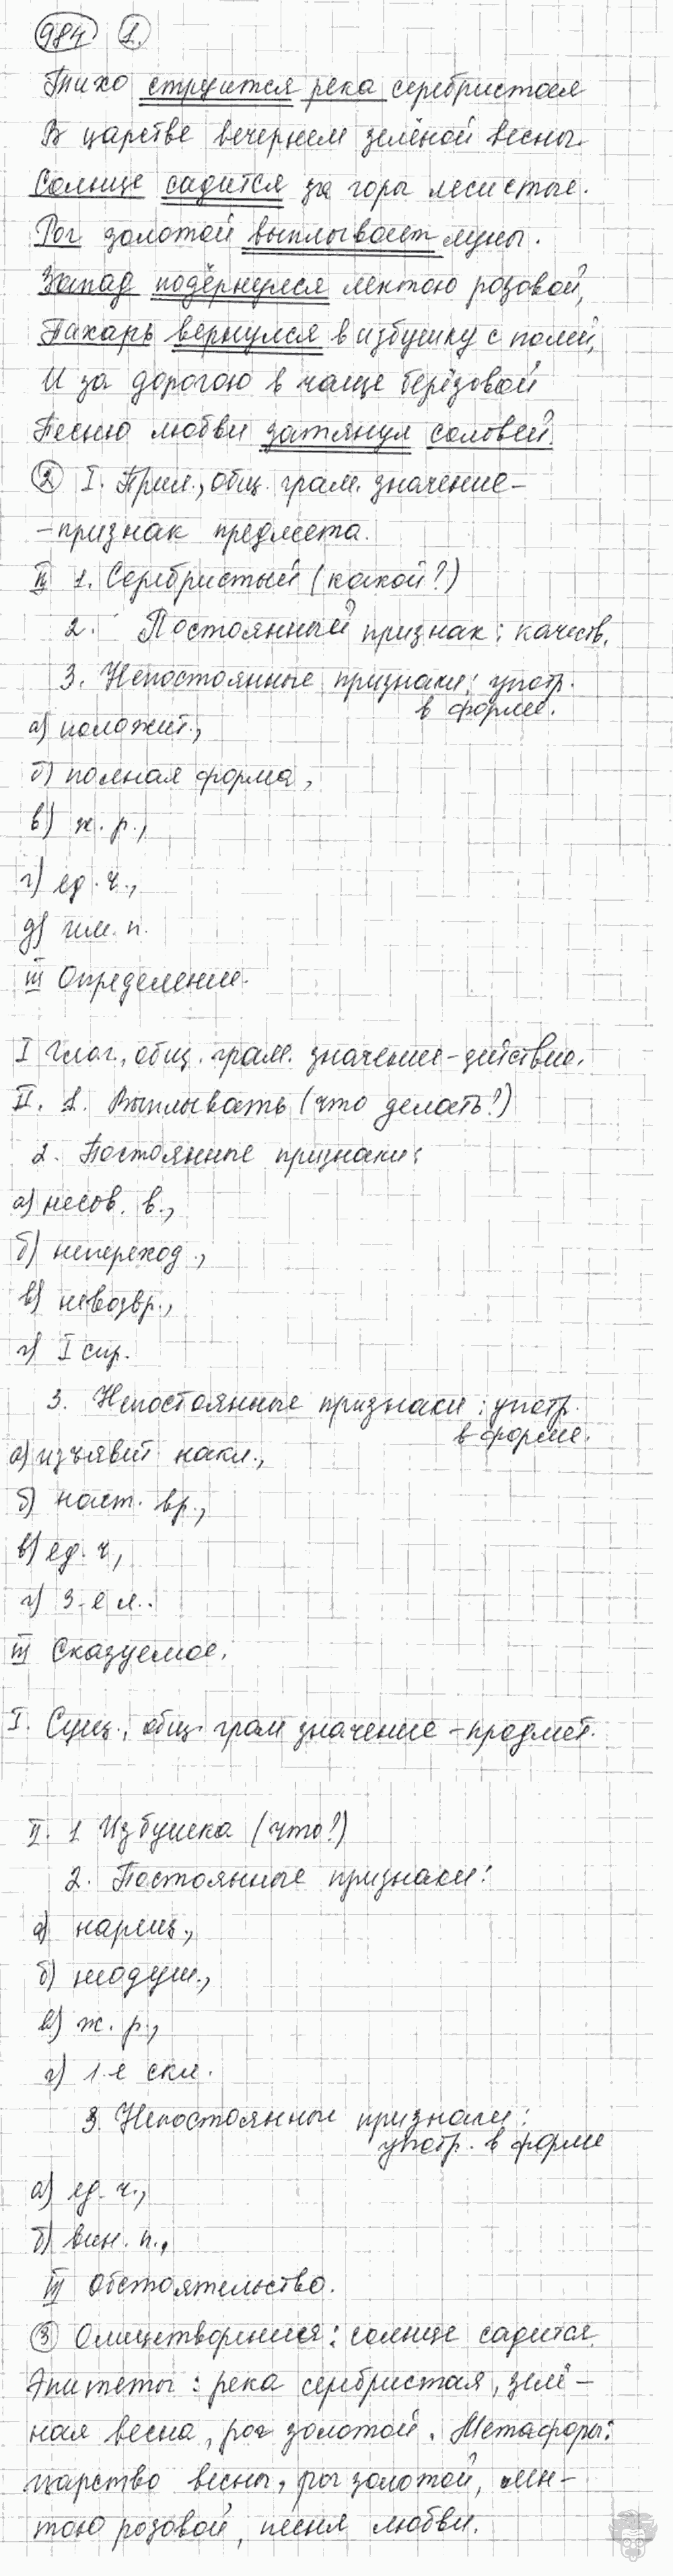 984 1.
Тихо струится река серебристая
В царстве вечернем зелёной весны.
Солнце садится за горы лесистые.
Рог золотой выплывает луны.
Запад подёрнулся лентою розовой,
Пахарь вернулся в избушку с полей,
И за дорогою в чаще берёзовой
Песню любви затянул соловей.
2 I. Прил., общ. грам. значение –
– признак предмета.
II 1. Серебристый (какой?)
2. Постоянный признак: качеств.
3. Непостоянные признаки: употр.
в форме.
а) положит.,
б) полная форма,
в) ж. р.,
г) ед. ч.,
д) им. п.
III Определение.
I Глаг., общ. грам. значение – действие.
II. 1. Выплывать (что делать?)
2. Постоянные признаки:
а) несов. в.,
б) непереход.,
в) невозвр.,
г) I спр.
3. Непостоянные признаки: употр.
в форме.
а) изъявит накл.,
б) наст. вр.,
в) ед. ч,
г) 3-е л.
III Сказуемое.
I. Сущ., общ. грам значение – предмет.
II. 1 Избушка (что?)
2. Постоянные признаки:
а) нариц.,
б) неодуш.,
в) ж. р.,
г) 1-е скл.
3. Непостоянные признаки:
употр. в форме
а) ед. ч.,
б) вин. п.,
III Обстоятельство.
3 Олицетворения: солнце садится.
Эпитеты: река серебристая, зелё-
ная весна, рог золотой. Метафоры:
царство весны, рог золотой, лен-
тою розовой, песня любви.